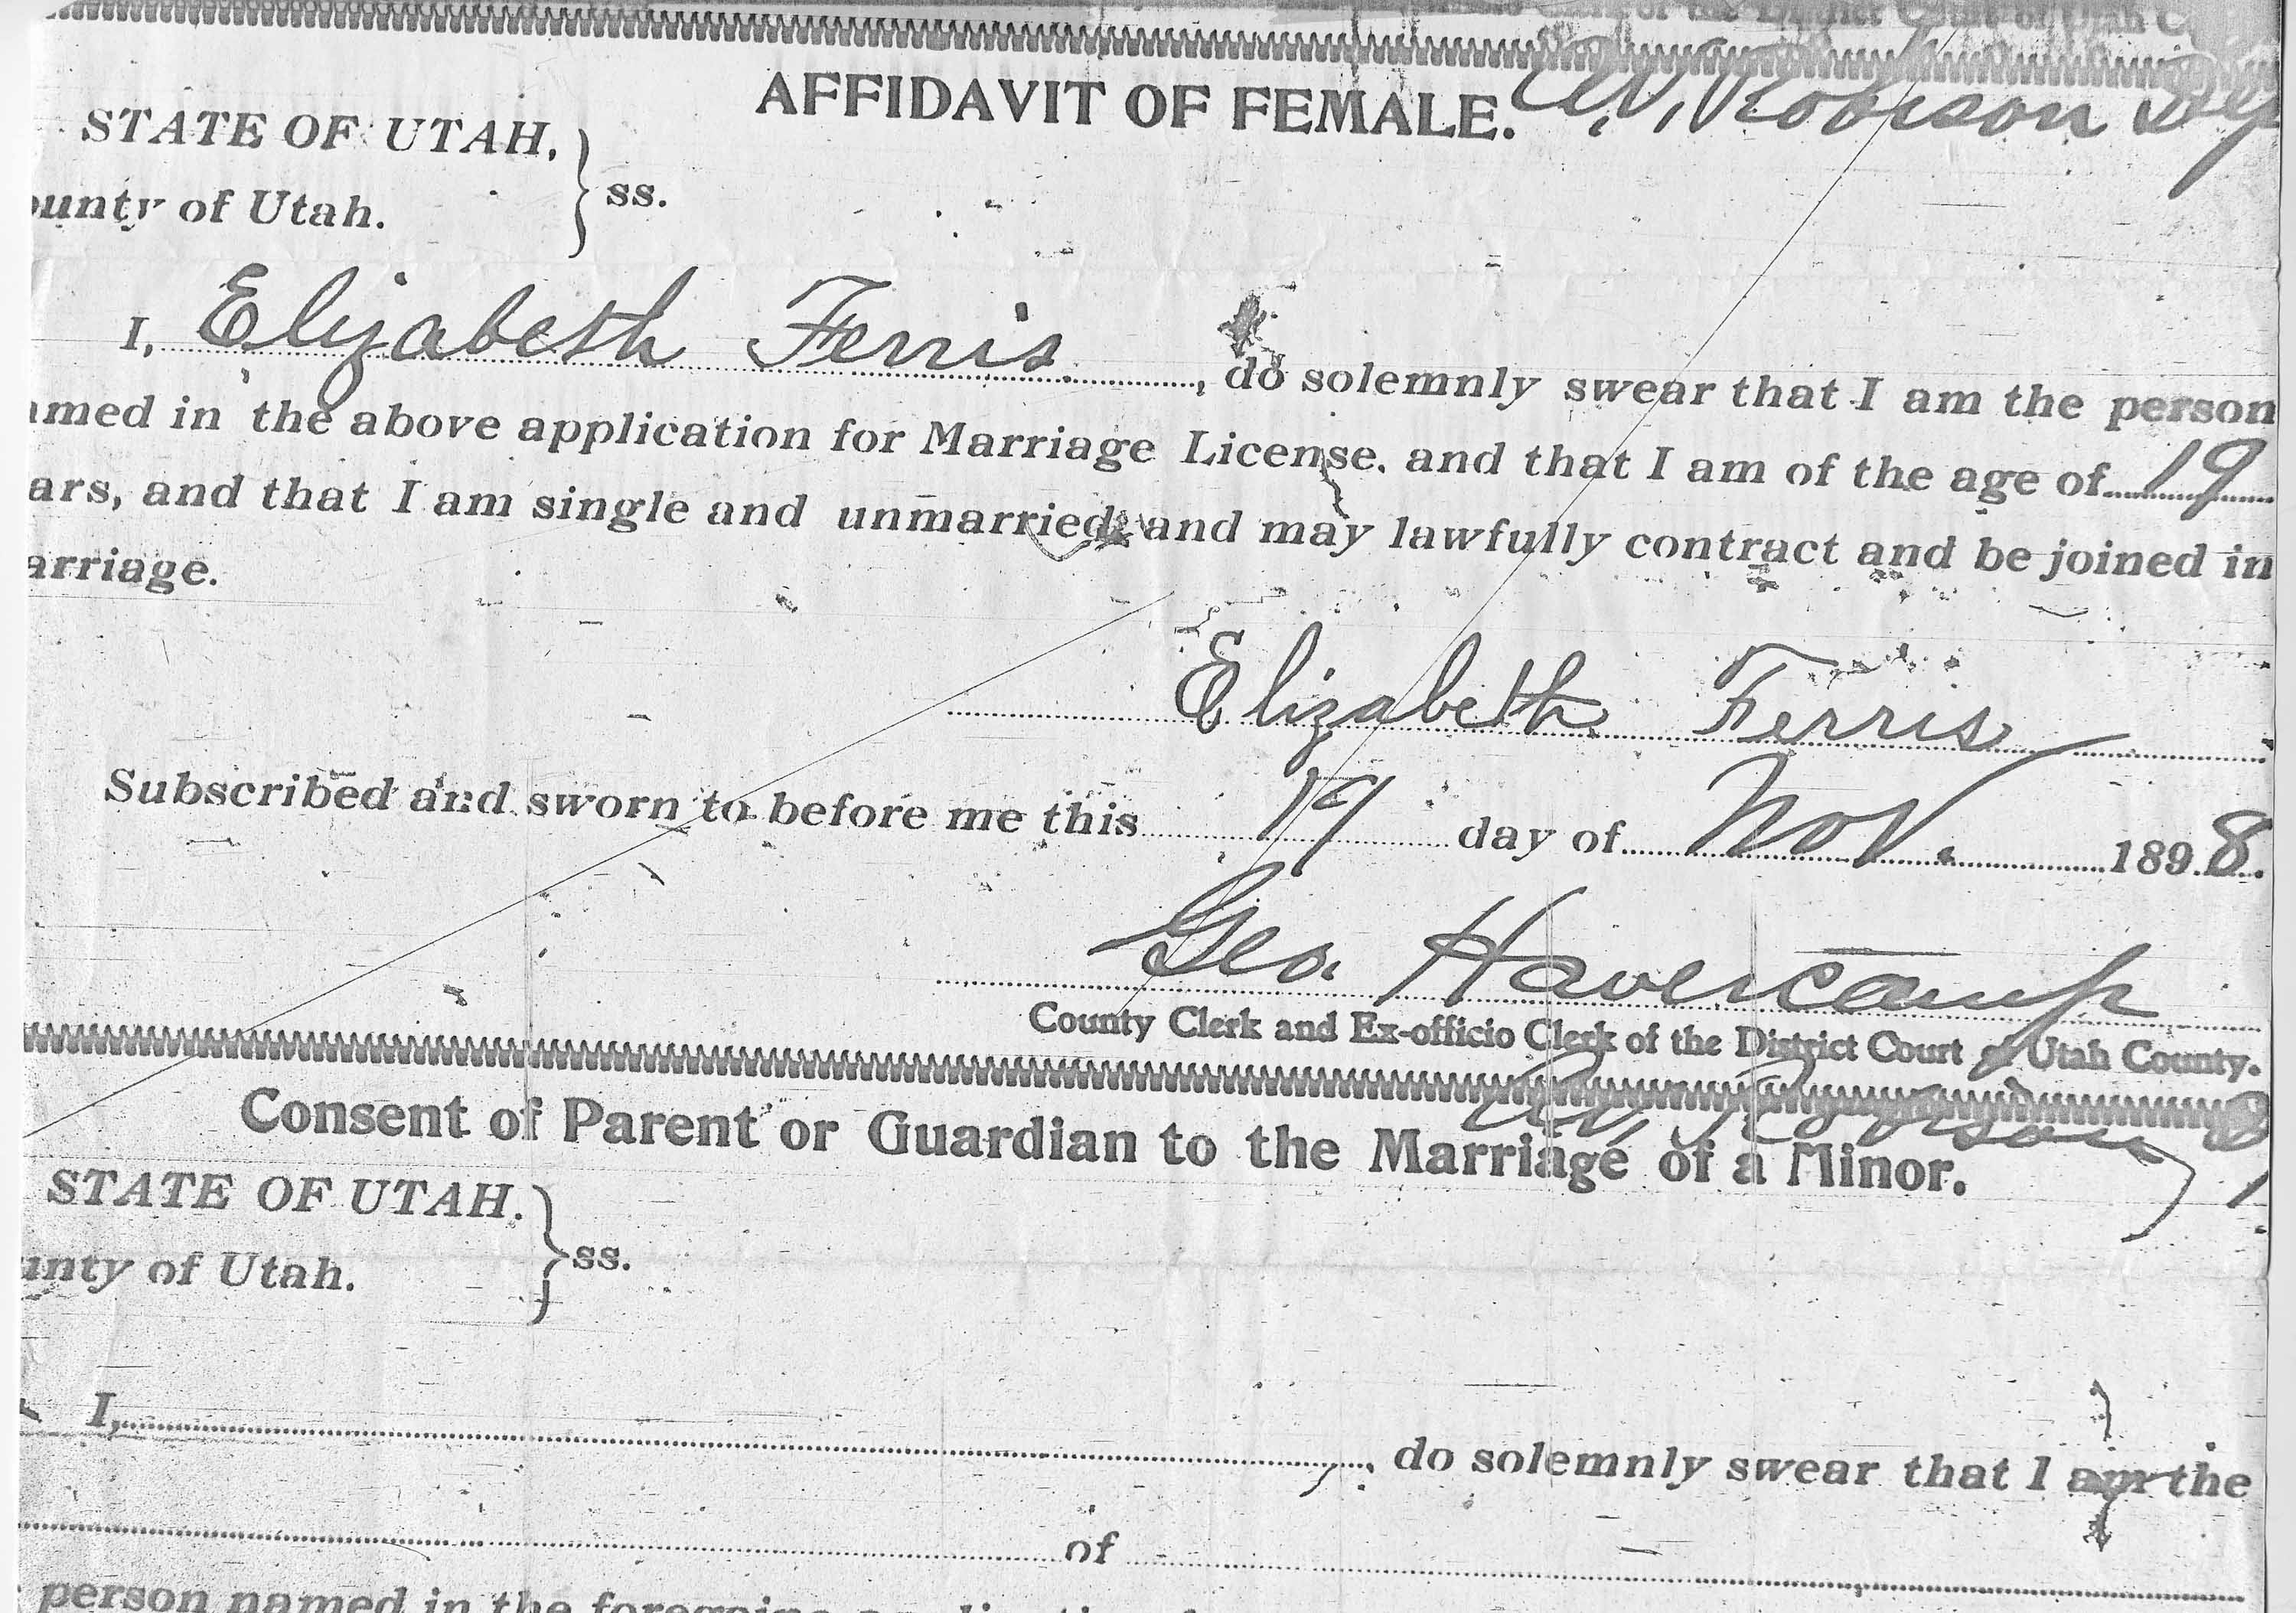 Clerk of the District Court of Utah C
AFFIDAVIT OF FEMALE. Robison Dep
STATE OF UTAH,
ounty of Utah. } ss.
I, Elizabeth Ferris, do solemnly swear that I am the person
amed in the above application for Marriage License, and that I am of the age of 19
ars, and that I am single and unmarried, and may lawfully contract and be joined in
arriage.
Elizabeth Ferris
Subscribed and sworn to before me this 19 day of Nov. 1898.
Geo. Havercamp
County Clerk and Ex-officio Clerk of the District Court of Utah County.
Robison
Consent of Parent or Guardian to the Marriage of a Minor.
STATE OF UTAH.
unty of Utah. } ss.
I, , do solemnly swear that I am the
of
person named in the foregoing application